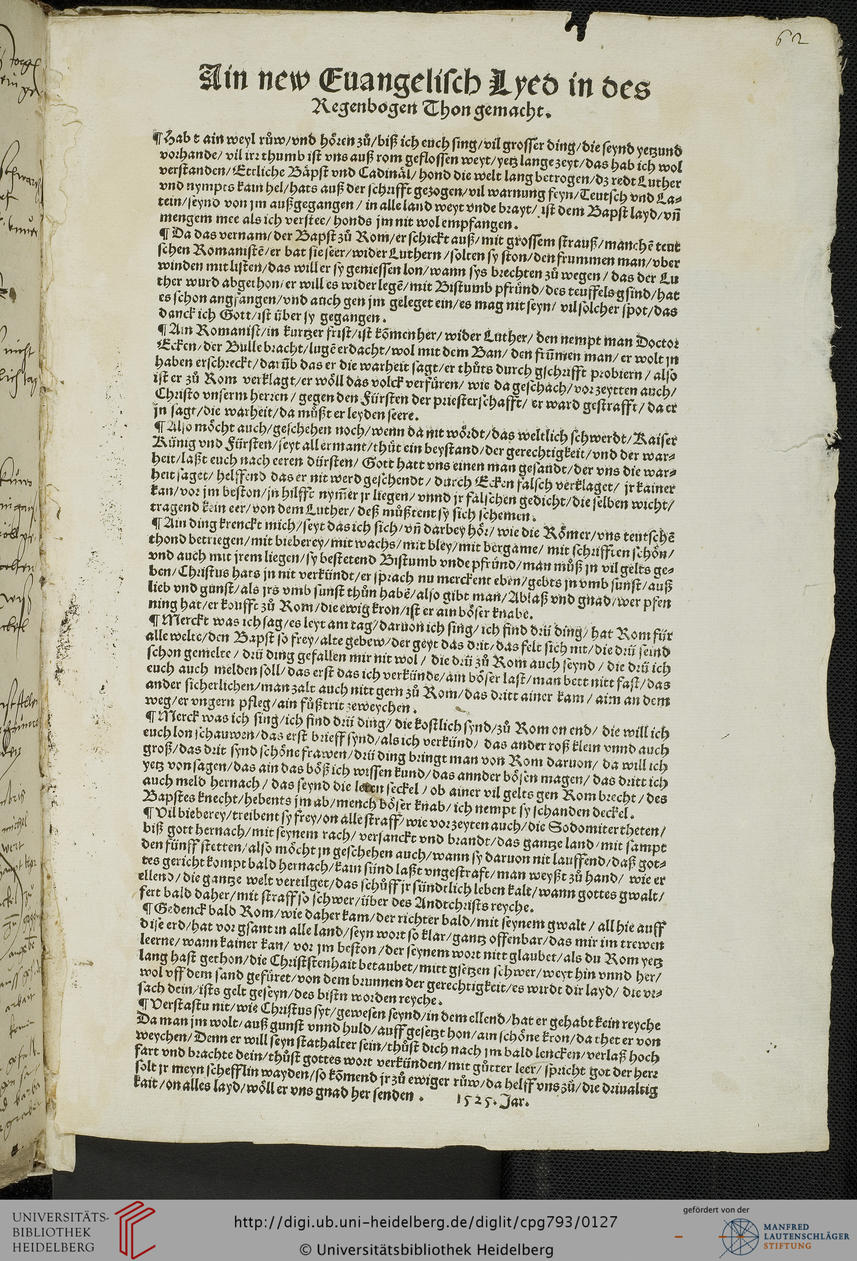 62
Ain new Euangelisch Lyed in des
Regenbogen Thon gemacht.
¶ Hab t ain weyl růw/vnd hören zů/biß ich euch sing/vil grosser ding/die seynd yetzund
vorhande/ vil irrthumb ist vns auß rom geflossen weyt/yetz lange zeyt/das hab ich wol
verstanden/Ettliche Bäpst vnd Cadinäl/ hond die welt lang betrogen/dz redt Luther
vnd nympts kain hel/hats auß der schrifft gezogen/vil warnung seyn/Teutsch vnd La⸗
tein/seynd von jm außgegangen / in alle land weyt vnde brayt/ ist dem Bapst layd/vn̄
mengem mee als ich verstee/ honds jm nit wol empfangen.
¶ Da das vernam/der Bapst zů Rom/er schickt auß/mit grossem strauß/manchē teut
schen Romanistē/er bat sie seer/wider Luthern /solten sy ston/den frummen man/vber
winden mit listen/das will er sy geniessen lon/wann sys brechten zů wegen / das der Lu
ther wurd abgethon/er will es widerlegē/mit Bistumb pfründ/des teuffels gsind/hat
es schon angfangen/vnd auch gen jm geleget ein/es mag nit seyn/ vil solcher spot/das
danck ich Gott/ist über sy gegangen.
¶ Ain Romanist/in kurtzer frist/ist kōmen her/ wider Luther/ den nempt man Doctor
Ecken/der Bulle bracht/lugē erdacht/wol mit dem Ban/ den frūmen man/ er wolt jn
haben erschreckt/darūb das er die warheit sagt/er thůts durch gschrifft probiern / also
ist er zů Rom verklagt/er wöll das volck verfüren/ wie da geschäch/vor zeytten auch/
Christo vnserm herren / gegen den Fürsten der priesterschafft/ er ward gestrafft/ da er
jn sagt/die warheit/da můßt er leyden seere.
¶ Also möcht auch/geschehen noch/wenn da nit wördt/das weltlich schwerdt/Kaiser
Künig vnd Fürsten/seyt all ermant/thüt ein beystand/der gerechtigkeit/vnd der war⸗
heit/laßt euch nach eeren dürsten/ Gott hatt vns einen man gesandt/der vns die war⸗
heit saget/ helffend das er nit werd geschendt / durch Ecken falsch verklaget/ jr kainer
kan/vor jm beston/jn hilfft nym̄er jr liegen/ vnnd jr falschen gedicht/die selben wicht/
tragend kein eer/von dem Luther/ deß müßtent sy sich schemen.
¶ Ain ding krenckt mich/seyt das ich sich/vn̄ darbey hör/ wie die Römer/vns teutschē
thond betriegen/mit bieberey/mit wachs/mit bley/mit bergame/ mit schrifften schön/
vnd auch mit jrem liegen/sy bestetend Bistumb vnde pfründ/man můß jn vil gelts ge⸗
ben/Christus hats jn nit verkündt/er sprach nu merckent eben/gebts jn vmb sunst/auß
lieb vnd gunst/als jrs vmb sunst thůn habē/also gibt man/Ablaß vnd gnad/wer pfen
ning hat/er kouffc zů Rom/die ewig kron/ist er ain böser knabe.
¶ Merckt was ich sag/es leyt am tag/daruon ich sing/ ich find drii ding/ hat Rom für
alle welte/den Bapst so frey/alte gebew/der geyt das drit/das felt sich nit/die drii seind
schon gemelte / drii ding gefallen mir nit wol / die drii zů Rom auch seynd / die drii ich
euch auch melden soll/das erst das ich verkünde/ain böser last/man bett nitt fast/das
ander sicherlichen/man zalt auch nitt gern zů Rom/das dritt ainer kam / aim an dem
weg/er vngern pfleg/ain fůßtrit zeweychen.
¶ Merck was ich sing/ich find drii ding/ die kostlich synd/zů Rom on end/ die will ich
euch lon schauwen/das erst brieff synd/als ich verkünd/ das ander roß klein vnnd auch
groß/das drit synd schöne frawen/drii ding bringt man von Rom daruon/ da will ich
yetz von sagen/das ain das böß ich wissen kund/das annder bösen magen/ das dritt ich
auch meld hernach / das seynd die leren seckel / ob ainer vil gelts gen Rom brecht / des
Bapstes knecht/hebents jm ab/mench böser knab/ ich nempt sy schanden deckel.
¶ Vil bieberey/treibent sy frey/on alle straff/wie vor zeyten auch/die Sodomiter theten/
biß gott hernach/mit seynem rach/ versanckt vnd brandt/das gantze land/mit sampt
den fünff stetten/also möcht jn geschehen auch/wann sy daruon nit lauffend/daß got⸗
tes gericht kompt bald hernach/kain sünd laßt vngestraft/man weyßt zů hand/ wie er
ellend/die gantze welt vereilget/das schůff jr sündtlich leben kalt/wann gottes gwalt/
fert bald daher/mit straff so schwer/über des Andtchrists reyche.
¶ Gedenck bald Rom/wie daher kam/der richter bald/mit seynem gwalt / all hie auff
dise erd/hat vor gsant in alle land/seyn wort so klar/gantz offenbar/das mir im trewen
leerne/wann kainer kan/ vor jm beston /der seynem wort nitt glaubet/als du Rom yetz
lang hast gethon/die Christenhait betaubet/mitt gsetzen schwer/weyt hin vnnd her/
wol vff dem sand gefüret/von dem brunnen der gerechtigkeit/es wirdt dir layd/ die vr⸗
sach dein/ists gelt geseyn/des bistu worden reyche.
¶ Verstastu nit/wie Christus syt/gewesen seynd/in dem ellend/hat er gehabt kein reyche
Da man jm wolt/auß gunst vnnd huld/auff gesetzt hon/ain schöne kron/da thet er von
weychen/Denn er will seyn stathalter sein/thůst dich nach jm bald lencken/verlaß hoch
fart vnd brachte dein/thůst gottes wort verkünden/mit gůtter leer/ spricht got der herr
solt jr meyn schefflin wayden/so kōmend jr zů ewiger růw/da helff vns zů/die driualtig
kait/on alles layd/wöll er vns gnad her senden . 1525. Jar.
UNIVERSITÄTS-
BIBLIOTHEK
HEIDELBERG
http://digi.ub.uni-heidelberg.de/diglit/cpg793/0127
© Universitätsbibliothek Heidelberg
gefördert von der
MANFRED
LAUTENSCHLÄGER
STIFTUNG